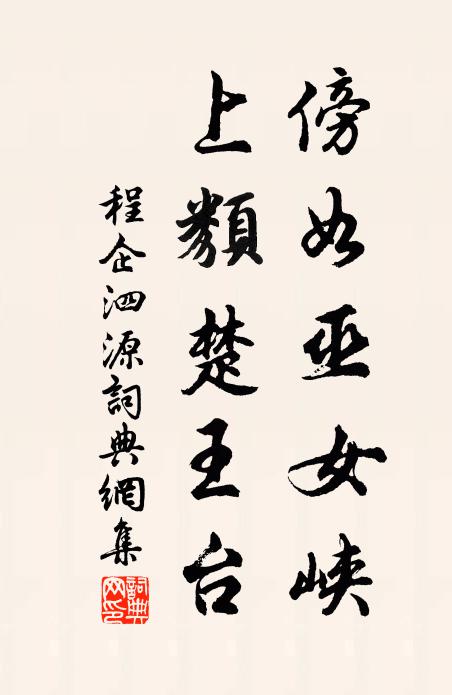 傍如巫女峡
上類楚王台
程企泗源詞典網集
詞典網印